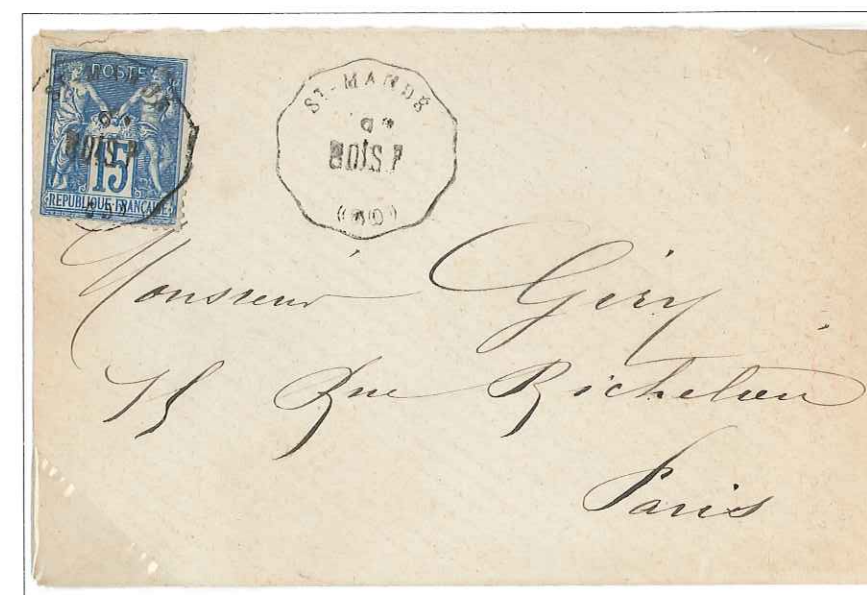 POSTE
15
REPUBLIQUE FRANÇAISE
ST-MANDÉ
(60)
Monsieur Géry
15 Rue Richelieu
Paris